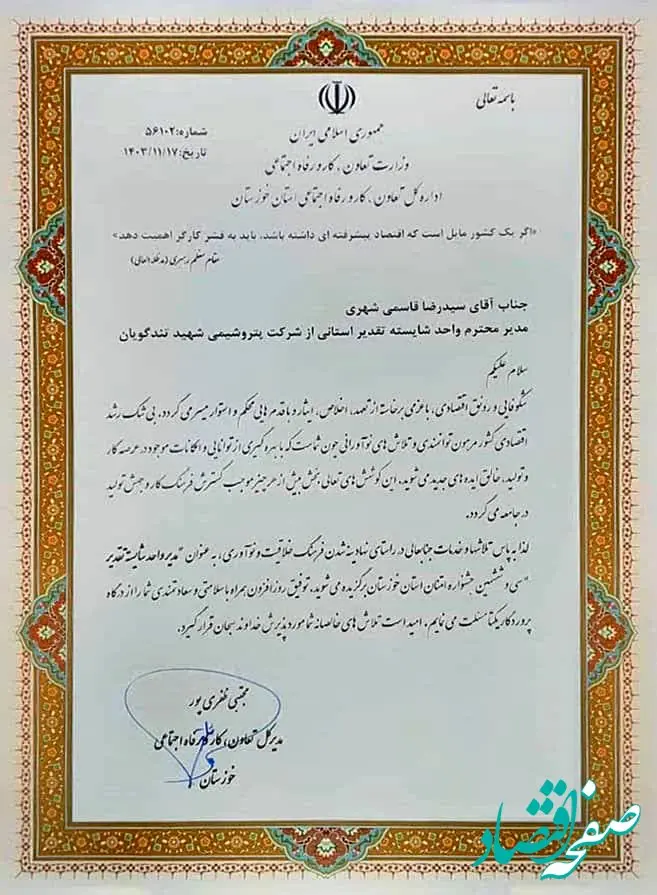 باسمه تعالی
جمهوری اسلامی ایران
شماره:۵۶۱۰۲
وزارت تعاون، کار و رفاه اجتماعی
تاریخ:۱۴۰۳/۱۱/۱۷
اداره کل تعاون، کار و رفاه اجتماعی استان خوزستان
«اگر یک کشور مایل است که اقتصاد پیشرفته ای داشته باشد، باید به قشر کارگر اهمیت دهد»
مقام معظم رهبری (مدظله العالی)
جناب آقای سیدرضا قاسمی شهری
مدیر محترم واحد شایسته تقدیر استانی از شرکت پتروشیمی شهید تندگویان
سلام علیکم
شکوفایی و رونق اقتصادی، با عزمی برخاسته از تعهد، اخلاص، ایثار و با قدم هایی محکم و استوار میسر می گردد. بی شک رشد
اقتصادی کشور مرهون توانمندی و تلاش های نوآورانی چون شماست که با بهره گیری از توانایی و امکانات موجود در عرصه کار
و تولید، خالق ایده های جدید می شوید. این کوشش های تعالی بخش بیش از هر چیز موجب گسترش فرهنگ کار و جهش تولید
در جامعه می گردد.
لذا به پاس تلاشها و خدمات جنابعالی در راستای نهادینه شدن فرهنگ خلاقیت و نوآوری، به عنوان "مدیر واحد شایسته تقدیر
" سی و ششمین جشنواره امتنان استان خوزستان برگزیده می شوید، توفیق روزافزون همراه با سلامتی و سعادتمندی شما را از درگاه
پروردگار یکتا مسئلت می نمایم. امید است تلاش های خالصانه شما مورد پذیرش خداوند سبحان قرار گیرد.
مجتبی ظفری پور
مدیرکل تعاون، کار و رفاه اجتماعی
خوزستان
صفحه اقتصاد